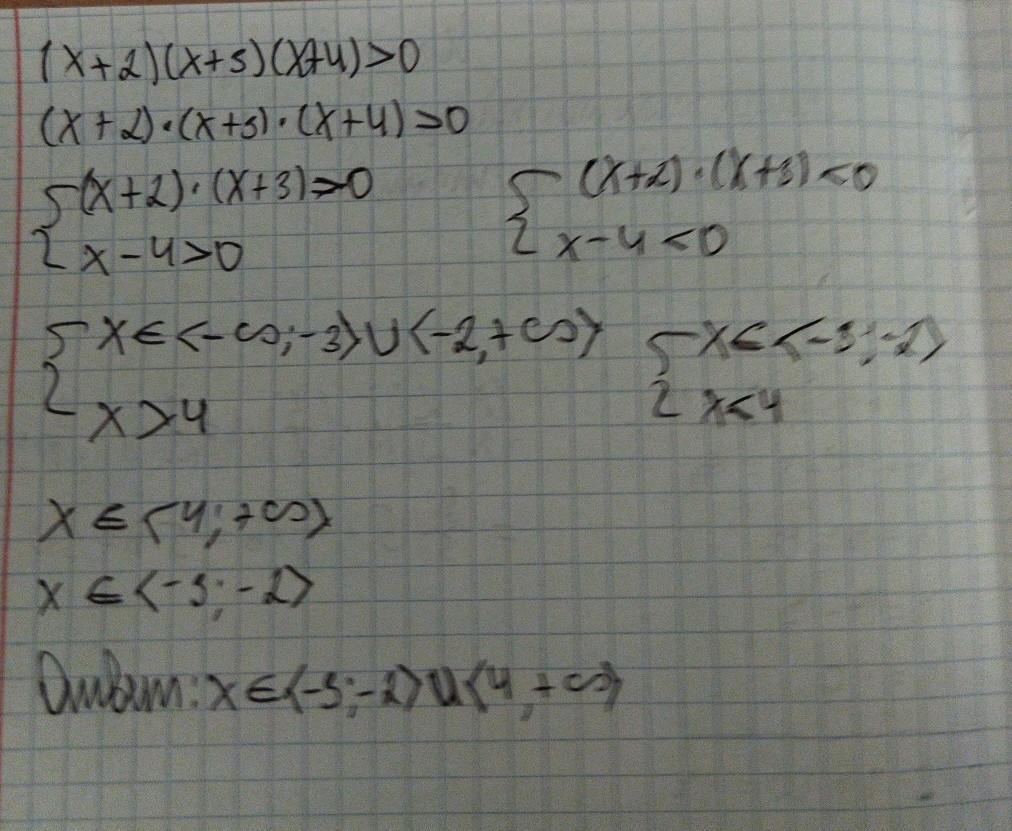 (x+2)(x+3)(x+4)>0
(x+2)·(x+3)·(x+4)>0
{(x+2)·(x+3)>0 {(x+2)·(x+3)<0
x-4>0 x-4<0
{x∈<-∞;-3>∪<-2,+∞> {x∈<-3;-2>
x>4 x<4
x∈<4;+∞>
x∈<-3;-2>
Ответ: x∈<-3;-2>∪<4,+∞>